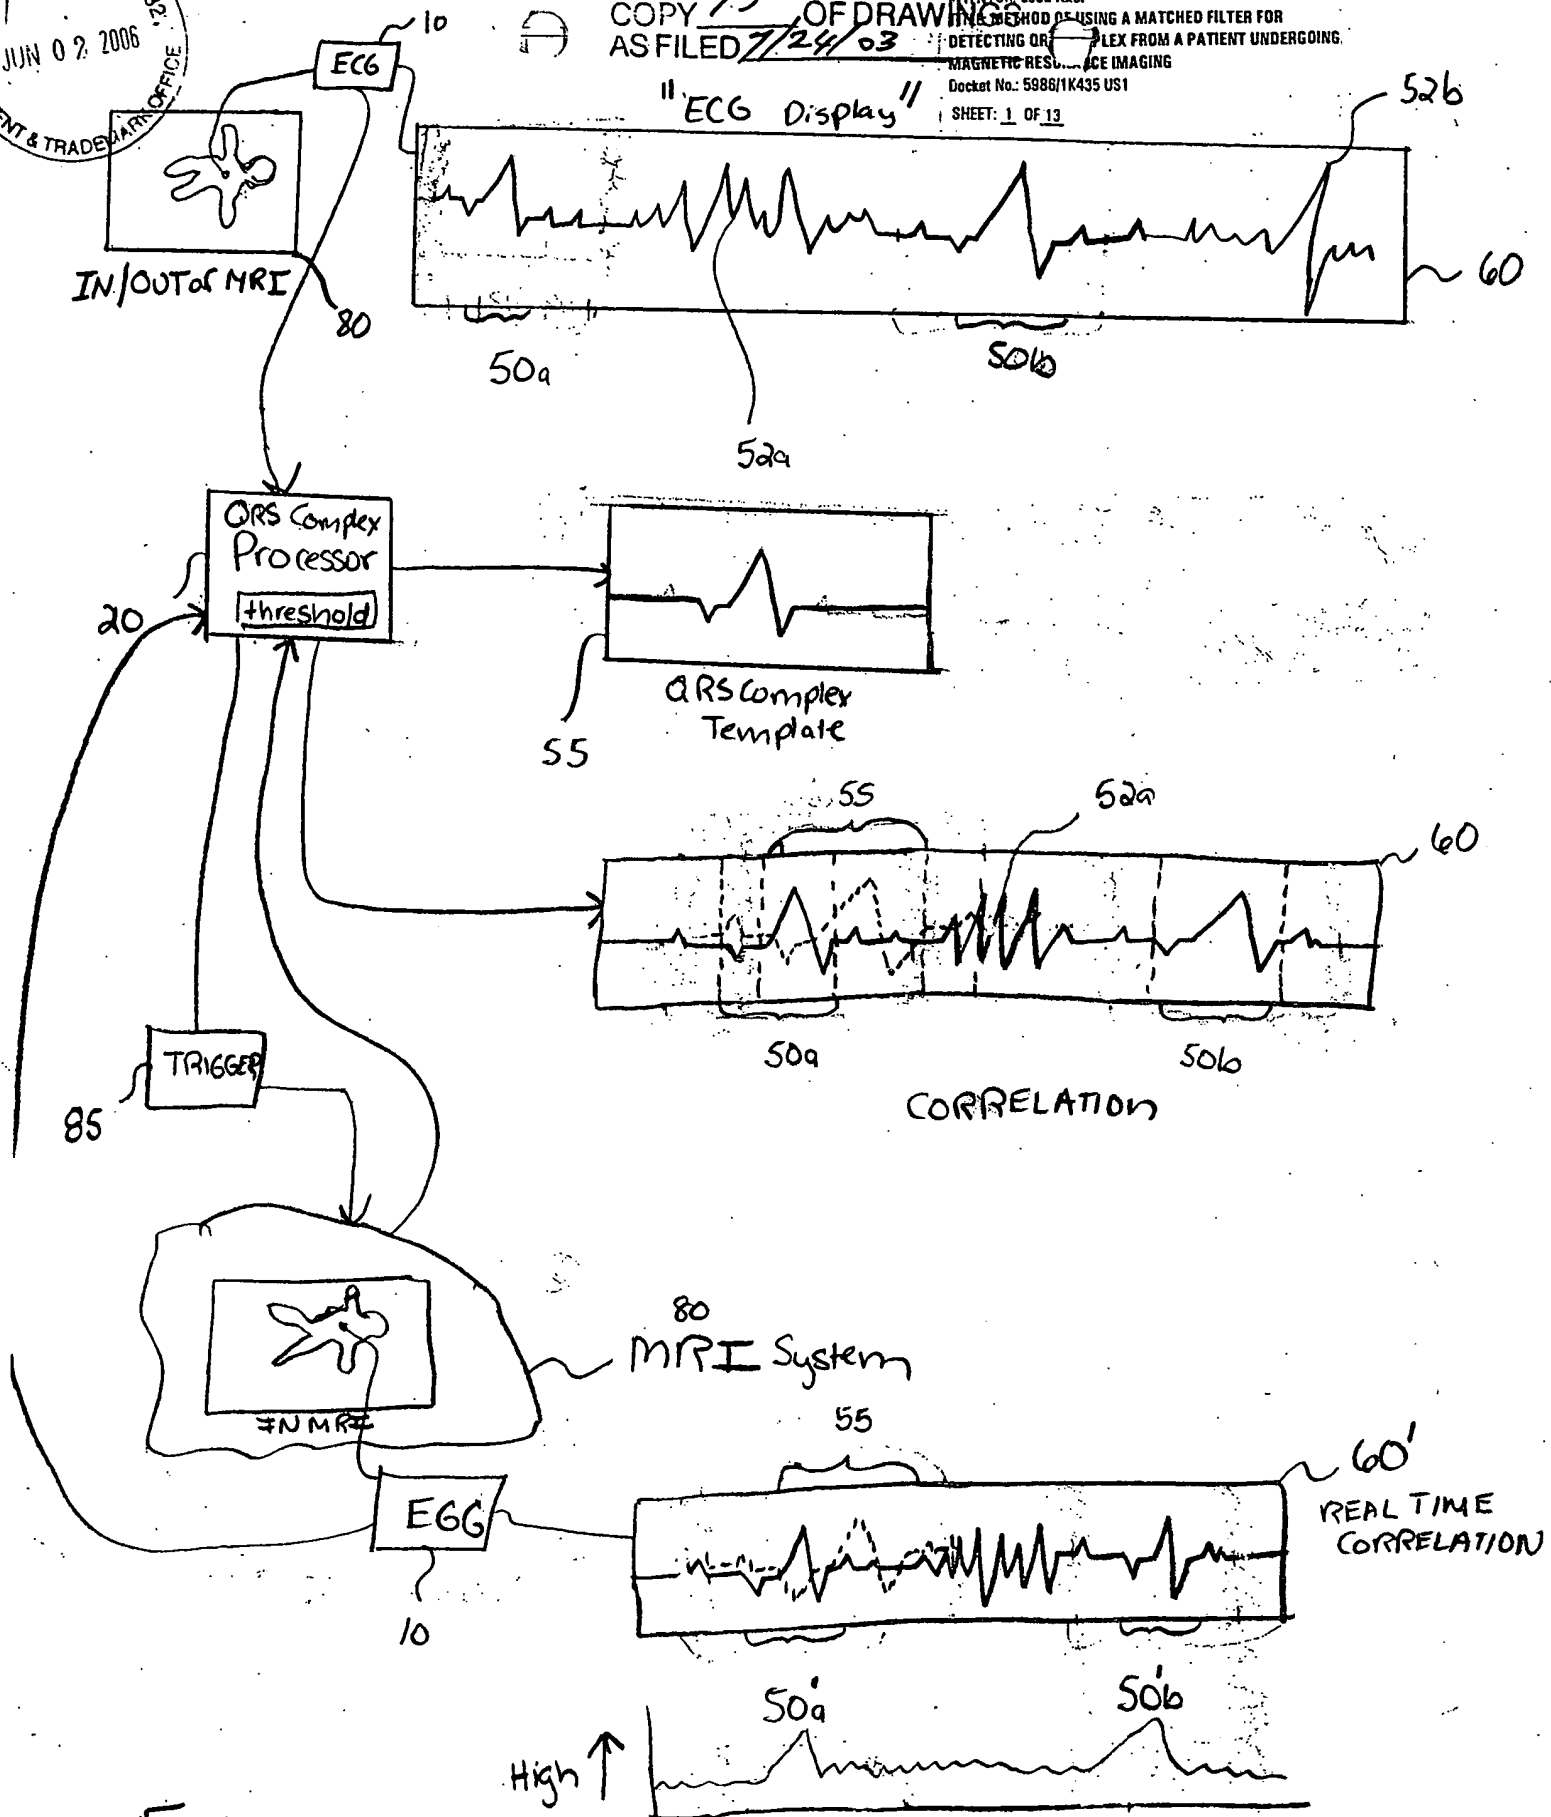 10
COPY OF DRAWINGS
AS FILED 7/24/03
METHOD OF USING A MATCHED FILTER FOR
DETECTING QR PLEX FROM A PATIENT UNDERGOING
MAGNETIC RESONANCE IMAGING
Docket No.: 5986/1K435 US1
SHEET: 1 OF 13
JUN 02 2006
ENT & TRADEMARK OFFICE
ECG
"ECG Display"
52b
IN/OUT OF MRI
80
60
50a
50b
52a
QRS Complex
Processor
threshold
20
QRS Complex
Template
55
55
52a
60
50a
50b
CORRELATION
TRIGGER
85
80
MRI System
IN MRI
55
60'
REAL TIME
CORRELATION
EGG
10
50'a
50'b
High